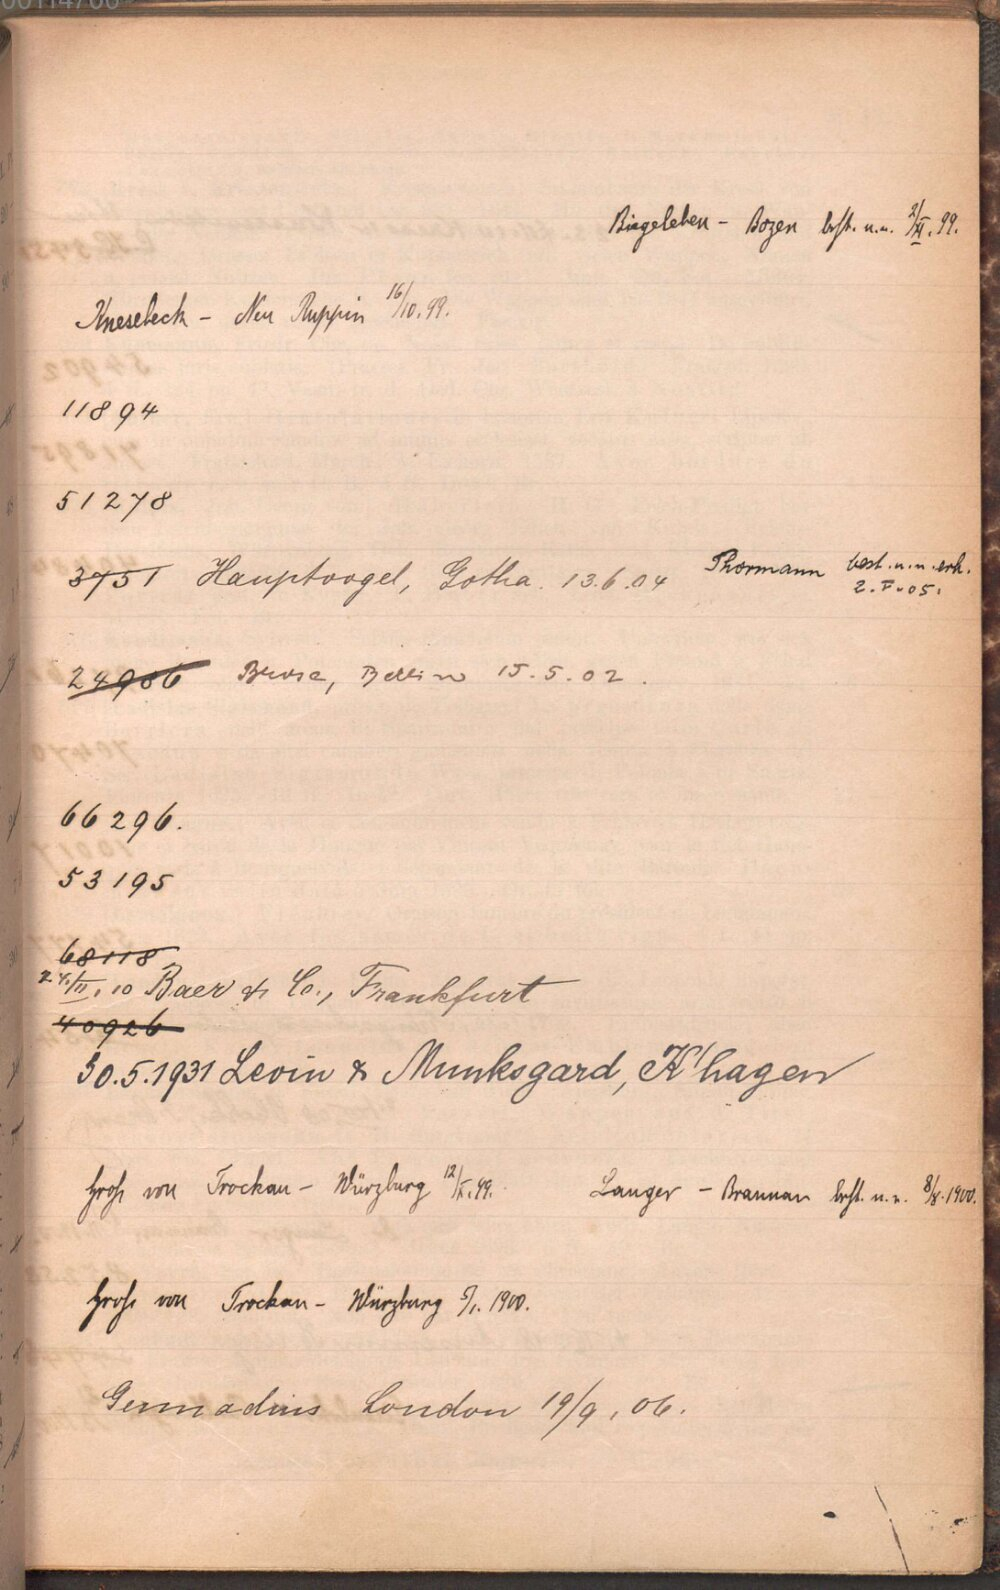 Biegeleben - Bozen best. n.n. 2/XI. 99.
Knesebeck - Neu Ruppin 16/10. 99.
11894
51278
3751 Hauptvogel, Gotha. 13.6.04 Thormann best. n. n. erh.
2. V. 05.
24906 Berlin 15.5.02.
66296.
53195
68118
24/II. 10 Baer & Co., Frankfurt
40926
30.5.1931 Levin & Munksgard, K'hagen
Groß von Trockau - Würzburg 12/X. 99. Langer - Braunau best. n. n. 8/X. 1900.
Groß von Trockau - Würzburg 5/1. 1900.
Gennadius London 19/9. 06.